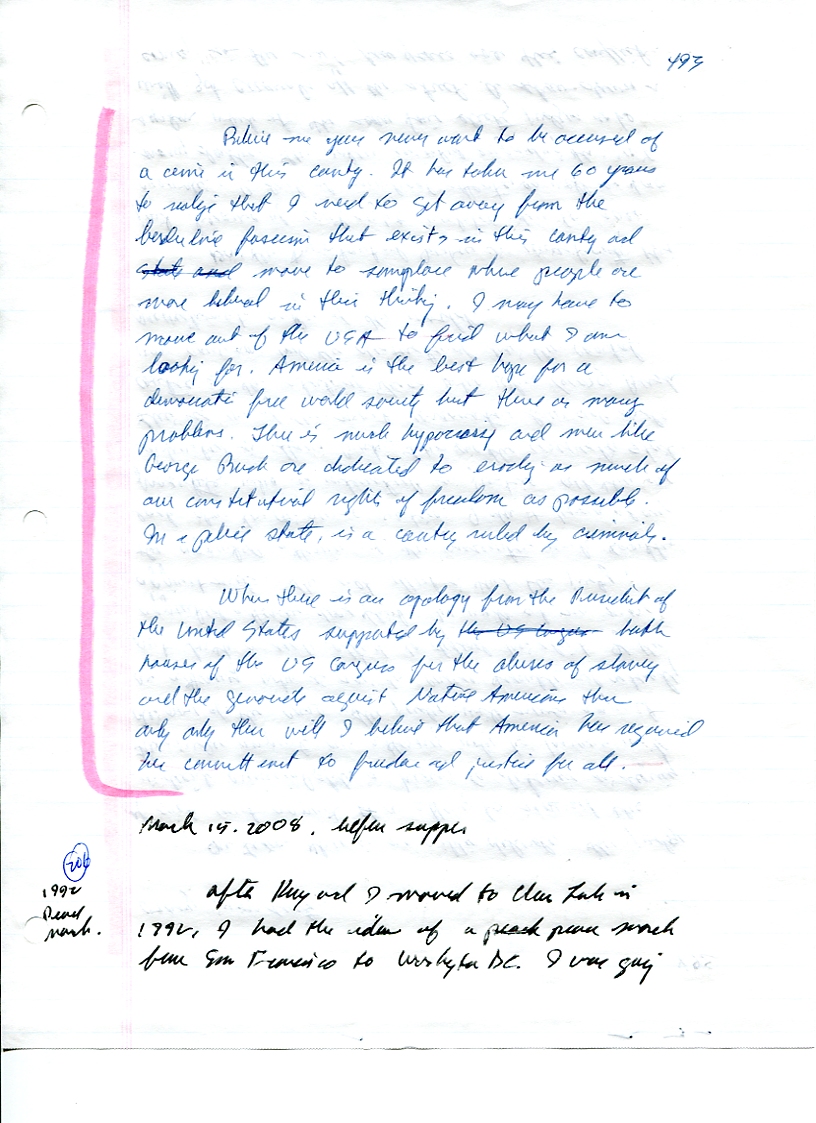 493
Believe me you never want to be accused of
a crime in this county. It has taken me 60 years
to realize that I need to get away from the
fascism that exists in this county and
state and move to someplace where people are
more liberal in their thinking. I may have to
move out of the USA to find what I am
looking for. America is the best hope for a
democratic free world society but there are many
problems. There is much hypocrisy and men like
George Bush are dedicated to eroding as much of
our constitutional rights of freedom as possible.
police state, is a country ruled by criminals.
When there is an apology from the President of
the United States supported by the US Congress both
houses of the US Congress for the abuses of slavery
and the genocide against Native Americans then
only only then will I believe that America has regained
her committment to freedom and justice for all.
March 15. 2008. before supper
206
1992
Peace
march.
after and I moved to Clear Lake in
1992, I had the idea of a peace march
from San Francisco to Washington DC. I was going